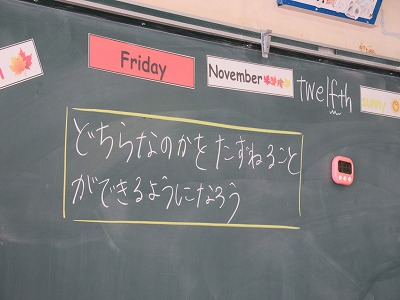 Friday
November
twelfth
sunny
どちらなのかをたずねること
ができるようになろう